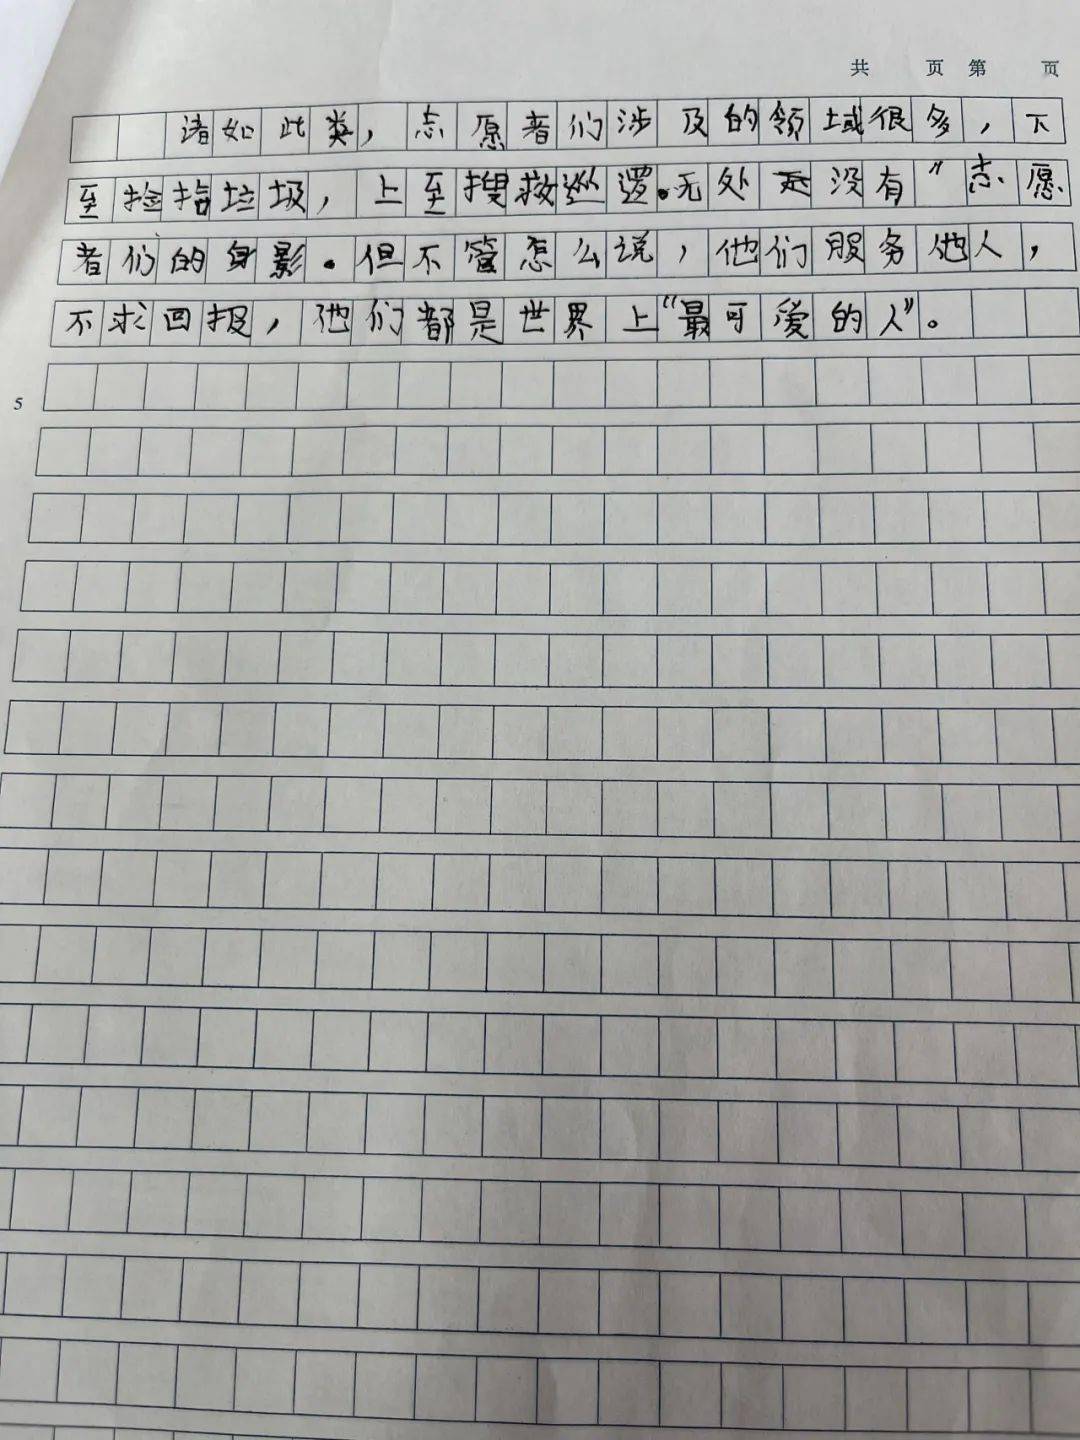 共 页 第 页
诸如此类，志愿者们涉及的领域很多，下
至捡拾垃圾，上至搜救巡逻。无处没有"志愿
者们的身影。但不管怎么说，他们服务他人，
不求回报，他们都是世界上“最可爱的人”。
5